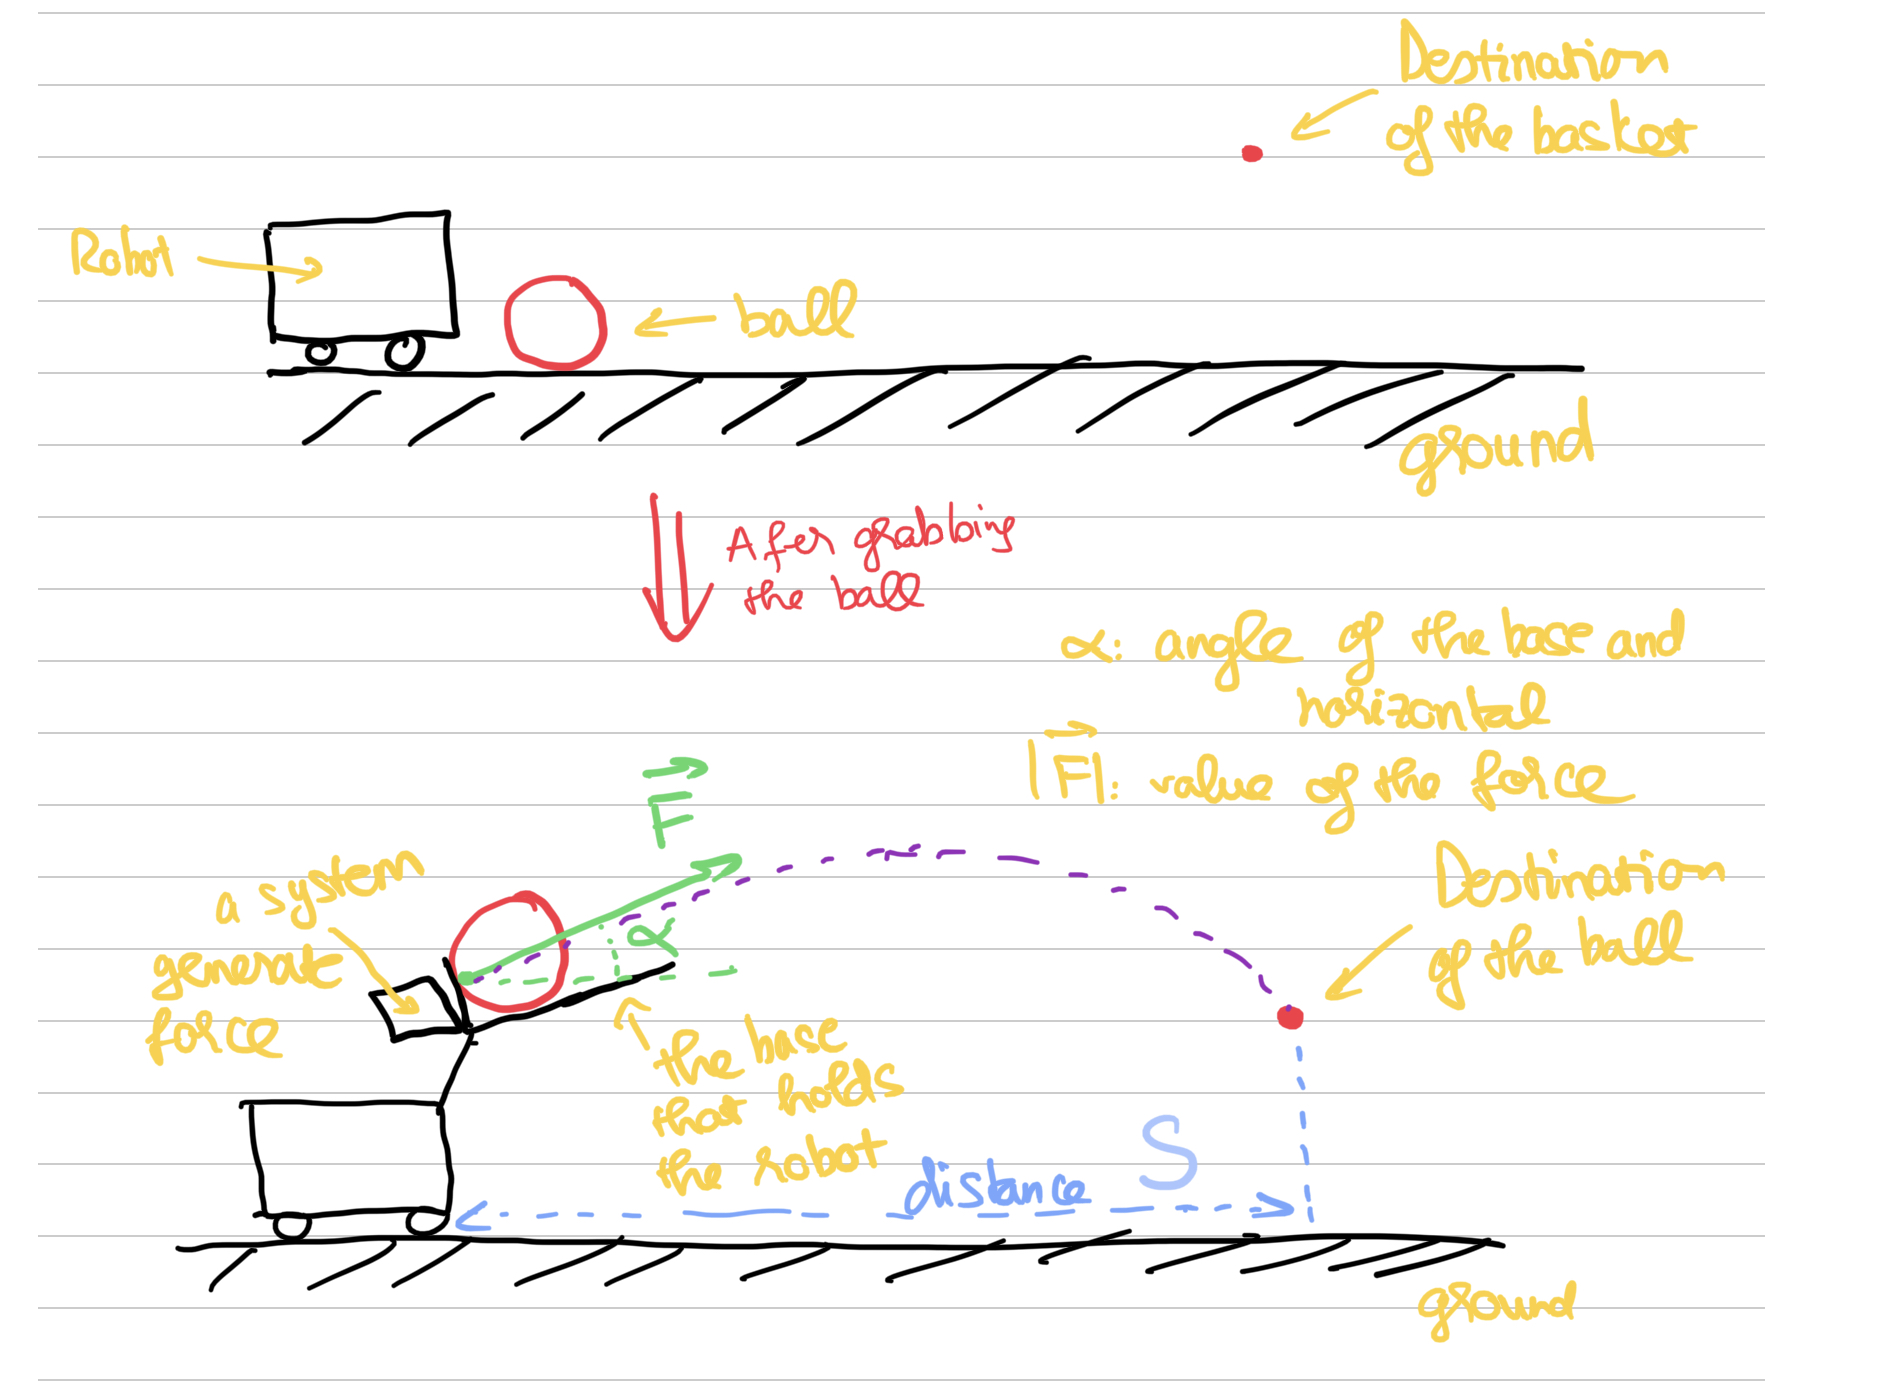 Destination
of the basket
Robot
ball
ground
After grabbing
the ball
α: angle of the base and
horizontal
|F|: value of the force
F
a system
generate
force
α
Destination
of the ball
the base
that holds
the robot
distance S
ground